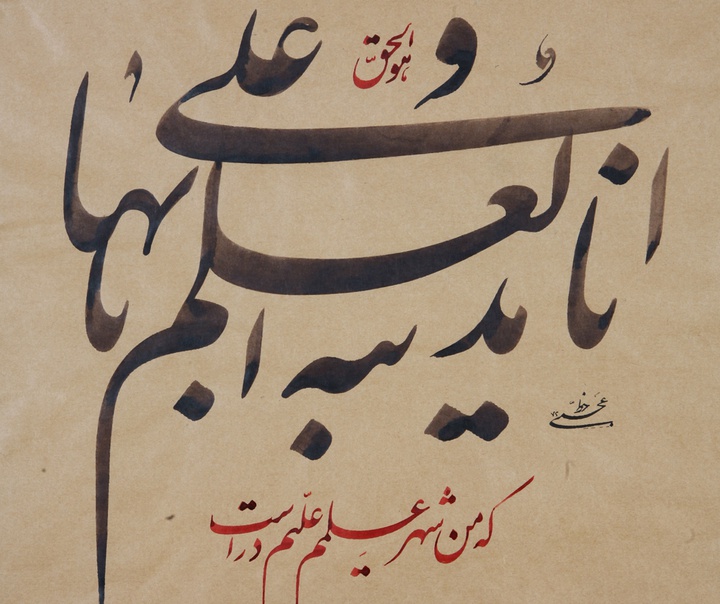 هو الحق
انا مدینه العلم و علی بابها
که من شهر علمم علیم در است